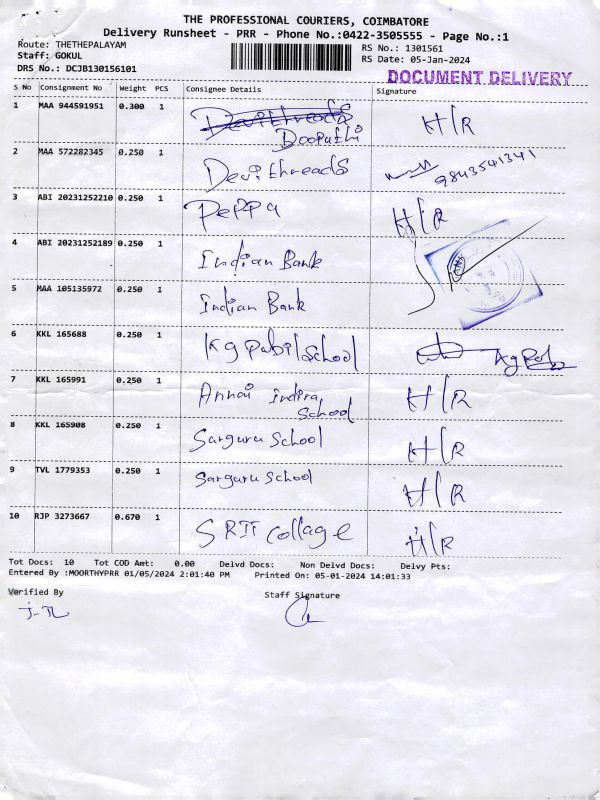 THE PROFESSIONAL COURIERS, COIMBATORE
Delivery Runsheet - PRR - Phone No.:0422-3505555 - Page No.:1
Route: THETHEPALAYAM
RS No.: 1301561
Staff: GOKUL
RS Date: 05-Jan-2024
DRS No.: DCJB130156101
DOCUMENT DELIVERY
S No Consignment No Weight PCS Consignee Details Signature
1 MAA 944591951 0.300 1 Devithreads H/R
Boopathi
2 MAA 572282345 0.250 1 Devithreads 9843541341
3 ABI 20231252210 0.250 1 Peppa H/R
4 ABI 20231252189 0.250 1 Indian Bank
5 MAA 105135972 0.250 1 Indian Bank
6 KKL 165688 0.250 1 Kg Pabil School
7 KKL 165991 0.250 1 Annai Indira H/R
School
8 KKL 165908 0.250 1 Sarguru School H/R
9 TVL 1779353 0.250 1 Sarguru School H/R
10 RJP 3273667 0.670 1 collage H/R
Tot Docs: 10 Tot COD Amt: 0.00 Delvd Docs: Non Delvd Docs: Delvy Pts:
Entered By :MOORTHYPRR 01/05/2024 2:01:40 PM Printed On: 05-01-2024 14:01:33
Verified By Staff Signature